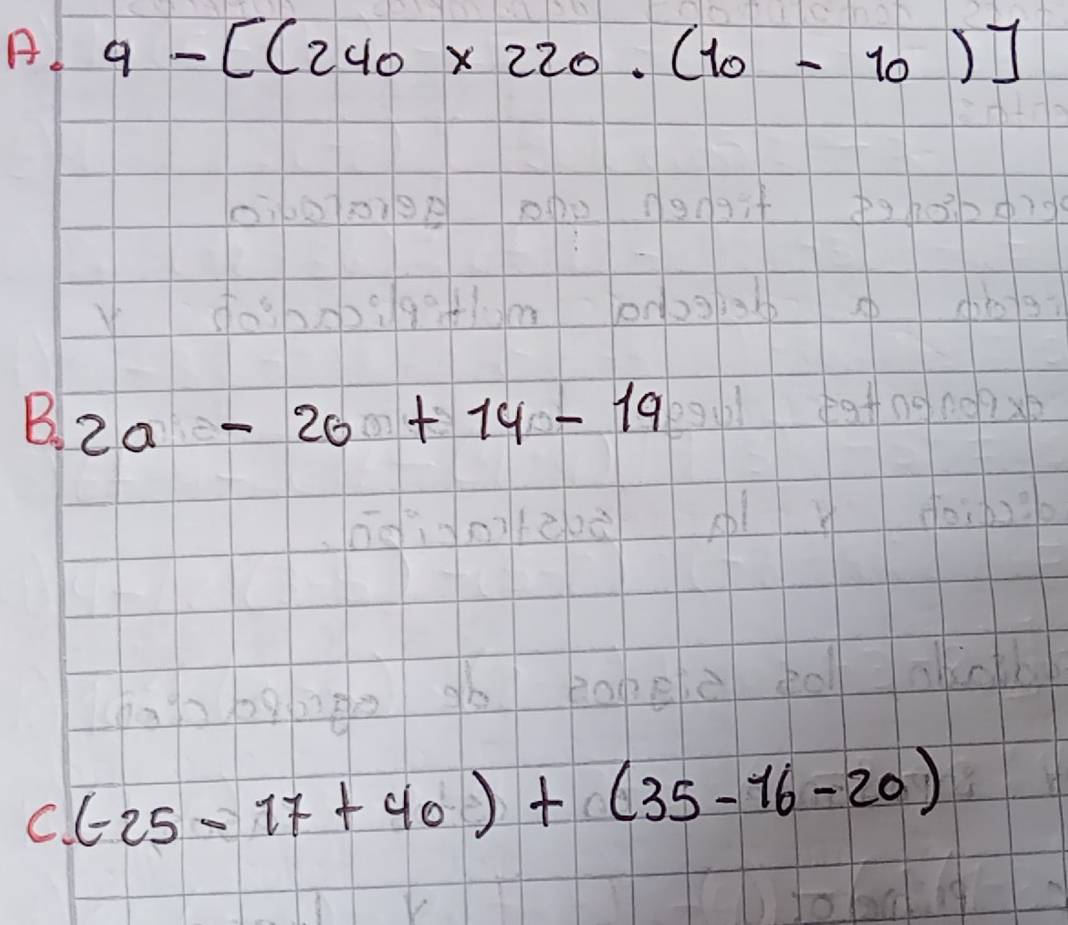 A. 9 - [(240 x 220 . (10 - 10)]
B. 2a - 20 + 14 - 19
C. (-25 - 17 + 40) + (35 - 16 - 20)